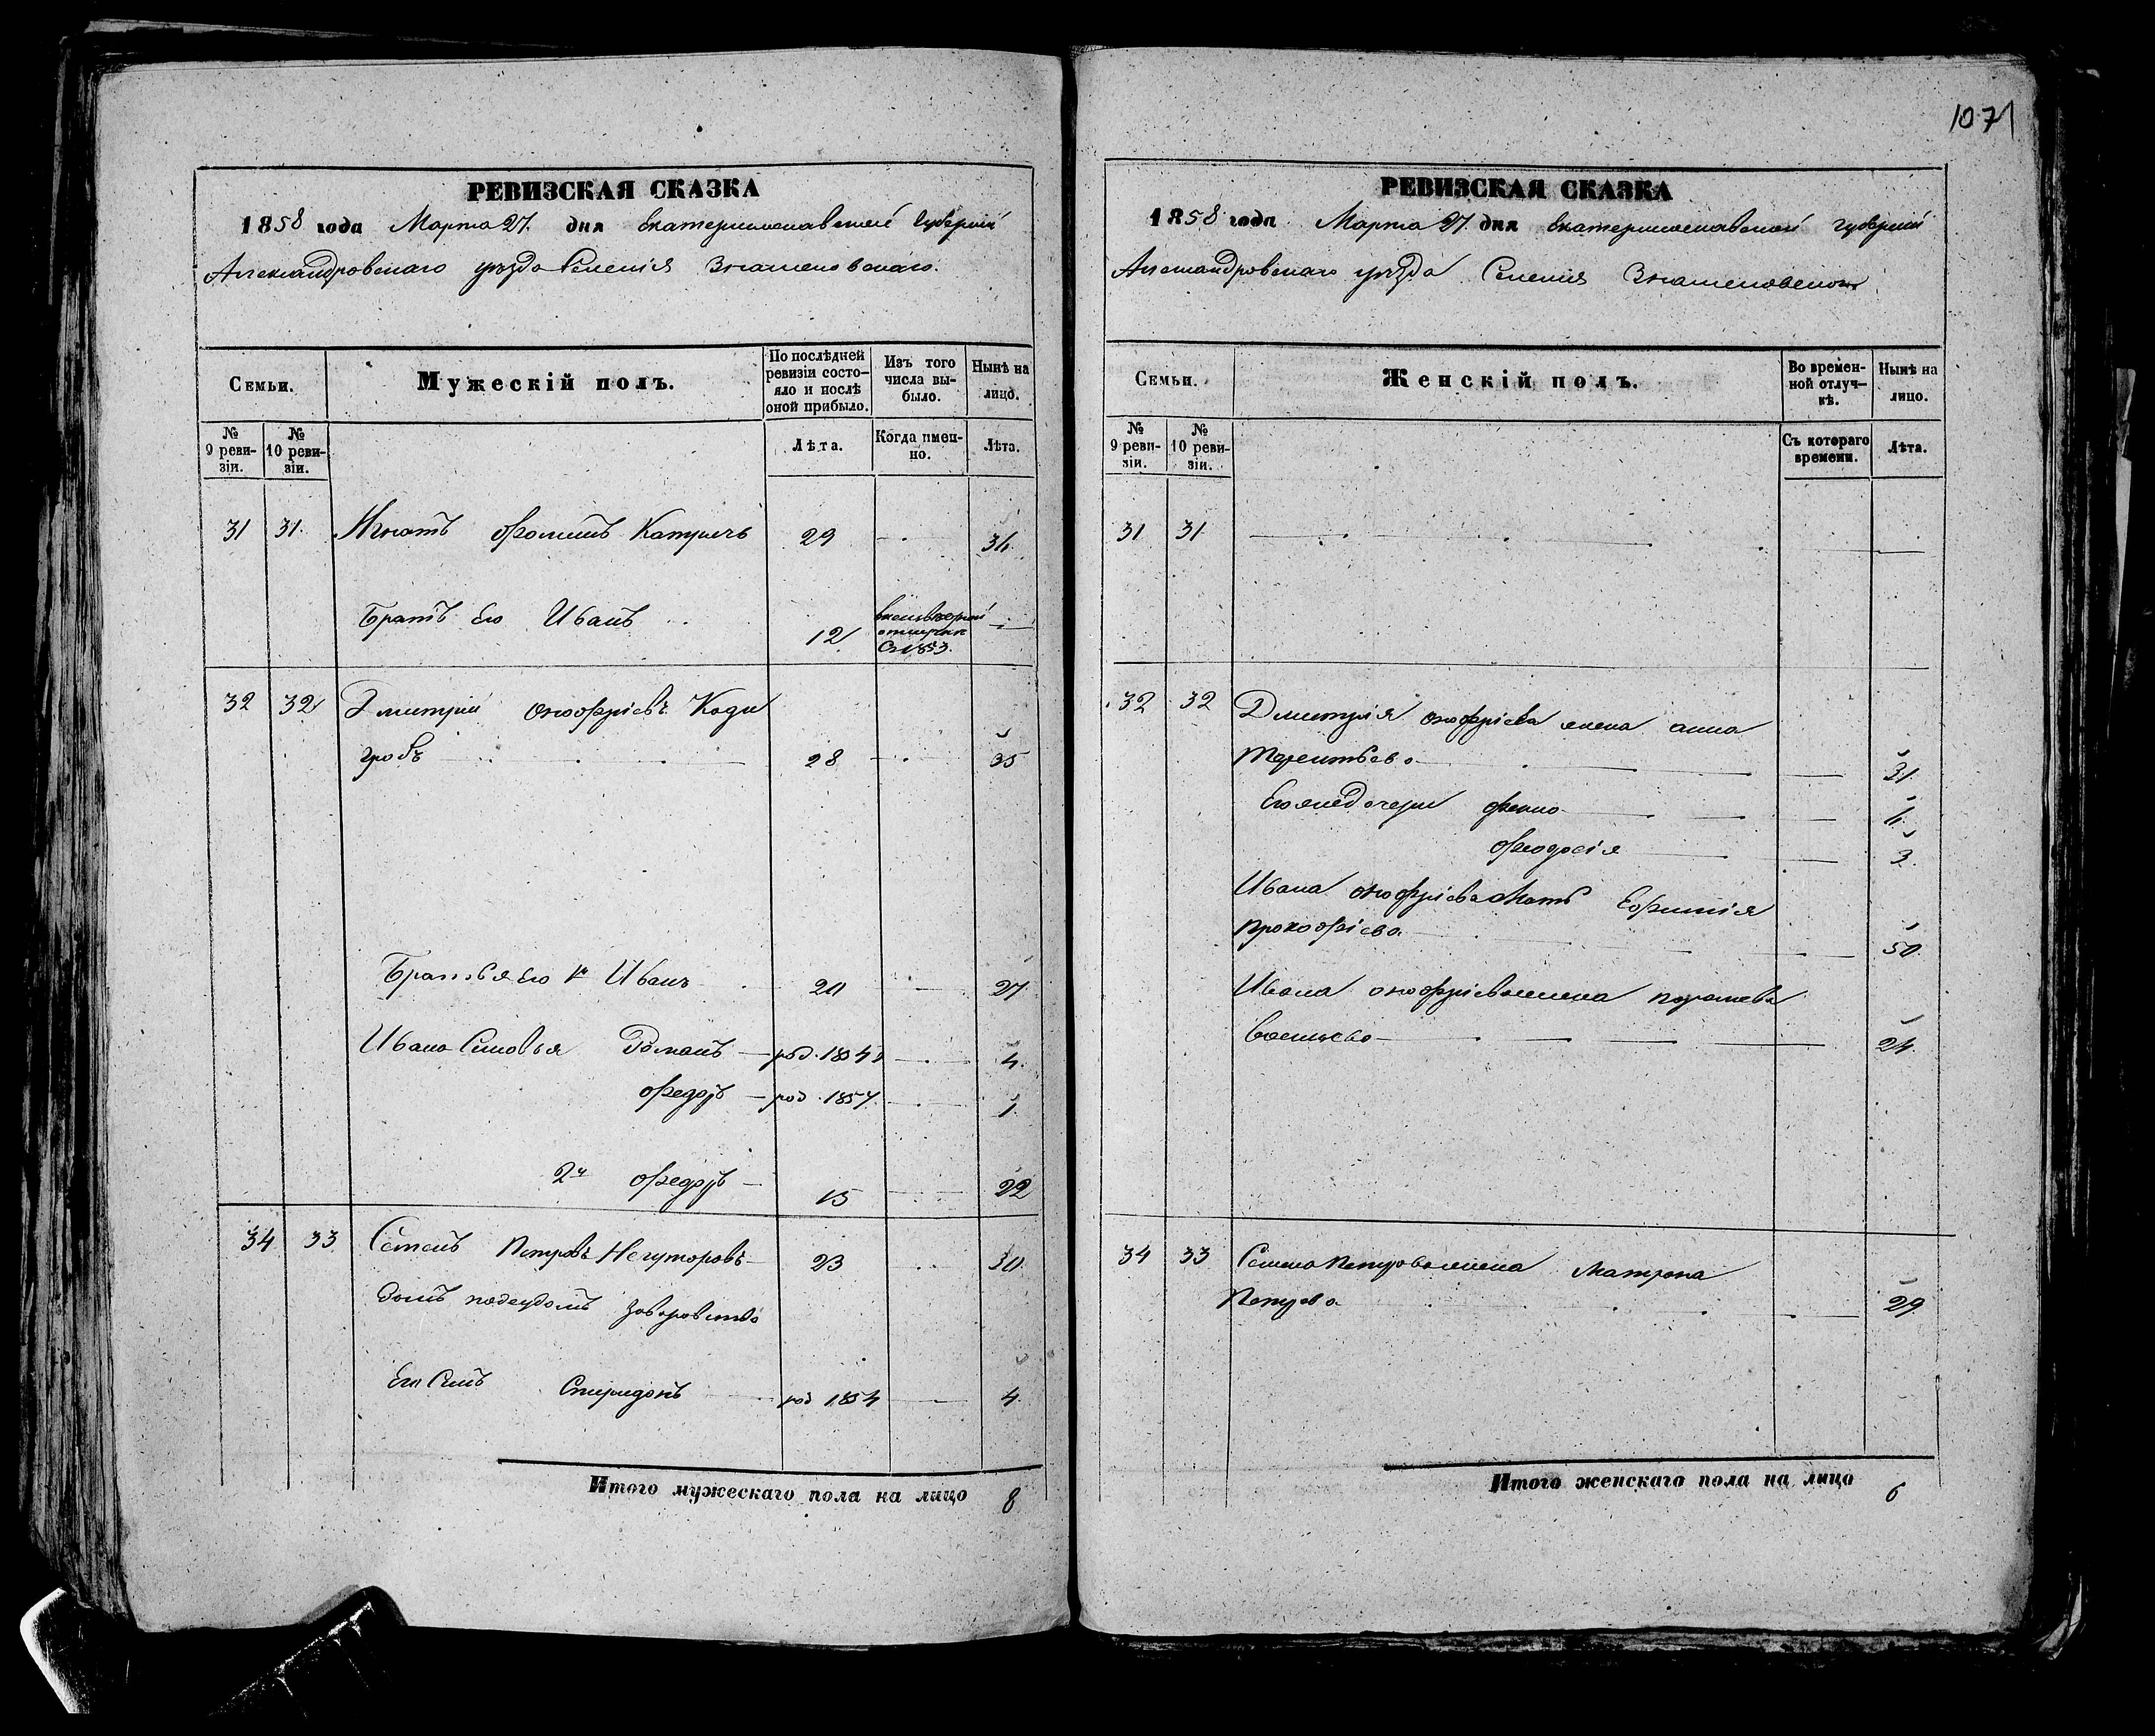 1071
РЕВИЗСКАЯ СКАЗКА
1858 года Марта 27. дня Екатеринославской Губерніи
Александровскаго уѣзда Селенія Знаменовскаго.
Семьи.
Мужескій полъ.
По послѣдней ревизіи состояло и послѣ оной прибыло.
Изъ того числа выбыло.
Нынѣ на лицо.
№ 9 ревизіи.
№ 10 ревизіи.
Лѣта.
Когда имен-но.
Лѣта.
31 31. Игнатъ Фоминъ 29
Братъ Его Иванъ 12
Съ 1853.
32 32 Дмитрій Онофріевъ Коди
гробъ 28 35
Братья Его 1й Иванъ 20 27
Ивана Сыновья Романъ род. 1854 4
Федоръ род. 1857. 1
2й Федоръ 15 22
34 33 Семенъ Петровъ Негуторовъ 23 30.
Его Сынъ Спиридонъ род 1854 4
Итого мужескаго пола на лицо 8
РЕВИЗСКАЯ СКАЗКА
1858 года Марта 27. дня Екатеринославской губерніи
Александровскаго уѣзда Селенія
Семьи.
Женскій полъ.
Во времен-ной отлуч-кѣ.
Нынѣ на лицо.
№ 9 реви-зіи.
№ 10 реви-зіи.
Съ котораго времени.
Лѣта.
31 31
32 32 Дмитрія Онофріева жена Анна
Терентьева 31.
дочери
Феодосія 3.
Ивана Онофріева Мать Ефимія
Прокофіева 50.
Ивана Онофріева жена
24.
34 33 Семена Петрова жена Матрона
Петрова 29.
Итого женскаго пола на лицо 6